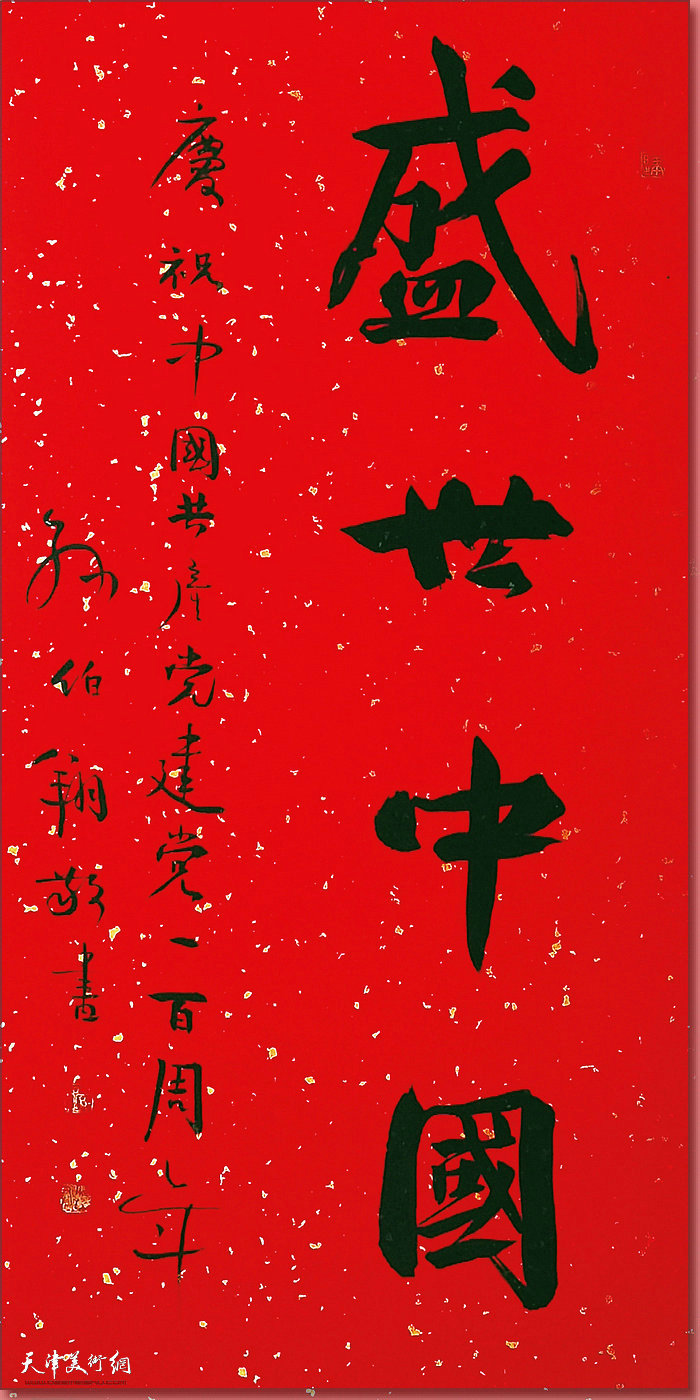 盛世中國
慶祝中國共產党建党一百周年
孙伯翔敬書
天津美術網